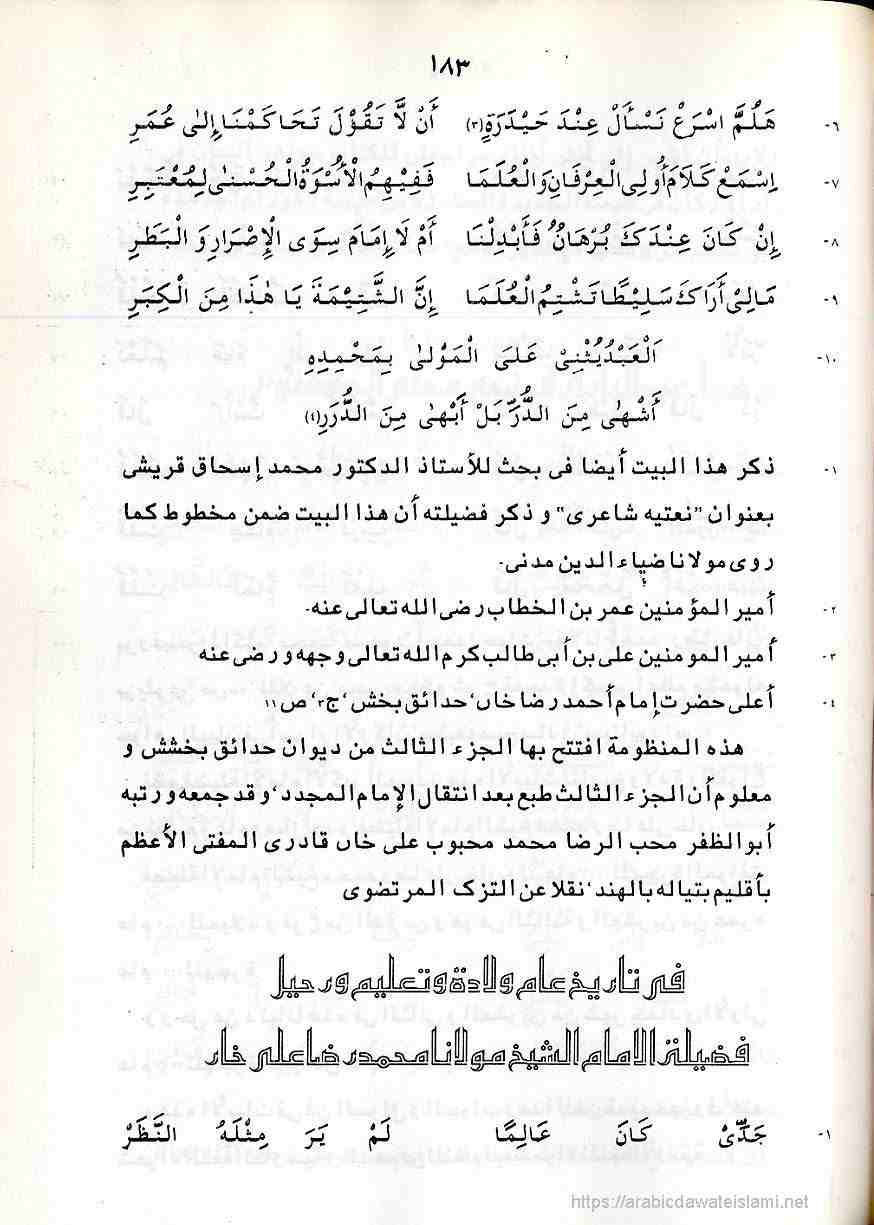 ١٨٣
٦- هَلُمَّ اسْرَعْ نَسْأَلْ عِنْدَ حَيْدَرَةٍ(٣) أَنْ لَّا تَقُوْلَ تَحَاكَمْنَا إِلىٰ عُمَرِ
٧- اِسْمَعْ كَلَامَ أُولِى الْعِرْفَانِ وَالْعُلَمَا فَفِيْهِمُ الْأُسْوَةُ الْحُسْنىٰ لِمُعْتَبِرِ
٨- إِنْ كَانَ عِنْدَكَ بُرْهَانٌ فَأَبْدِلْنَا أَمْ لَا إِمَامَ سِوَى الْإِصْرَارِ وَ الْبَطَرِ
٩- مَالِىْ أَرَاكَ سَلِيْطًا تَشْتِمُ الْعُلَمَا إِنَّ الشَّتِيْمَةَ يَا هٰذَا مِنَ الْكِبَرِ
١٠- اَلْعَبْدُ يُثْنِىْ عَلَى الْمَوْلىٰ بِمَحْمِدِهِ
أَشْهٰى مِنَ الدُّرِّ بَلْ أَبْهٰى مِنَ الدُّرَرِ(٤)
١- ذكر هذا البيت أيضا فى بحث للأستاذ الدكتور محمد إسحاق قريشى
بعنوان "نعتيه شاعرى" و ذكر فضيلته أن هذا البيت ضمن مخطوط كما
روى مولانا ضياء الدين مدنى.
٢- أمير المؤمنين عمر بن الخطاب رضى الله تعالى عنه.
٣- أمير المومنين على بن أبى طالب كرم الله تعالى وجهه و رضى عنه
٤- أعلى حضرت إمام أحمد رضا خاں، حدائق بخش، ج٣، ص ١١
هذه المنظومة افتتح بها الجزء الثالث من ديوان حدائق بخشش و
معلوم أن الجزء الثالث طبع بعد انتقال الإمام المجدد، و قد جمعه و رتبه
أبو الظفر محب الرضا محمد محبوب على خاں قادرى المفتى الأعظم
بأقليم بتياله بالهند، نقلا عن التزک المرتضوى
فى تاريخ عام ولادة و تعليم و رحيل
فضيلة الامام الشيخ مولانا محمد رضا على خاں
١- جَدِّىْ كَانَ عَالِمًا لَمْ يَرَ مِثْلَهُ النَّظَرْ
https://arabicdawateislami.net